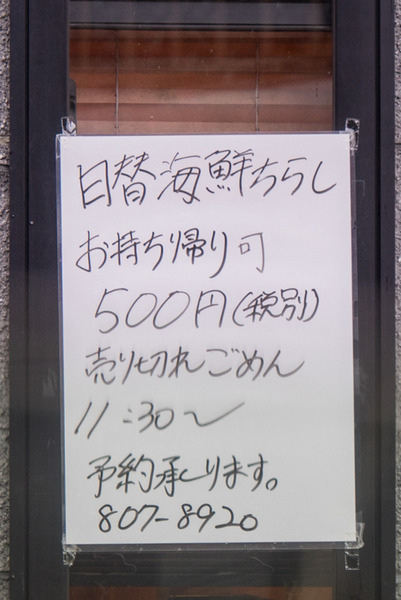 日替海鮮ちらし
お持ち帰り可
500円(税別)
売り切れごめん
11:30〜
予約承ります。
807-8920